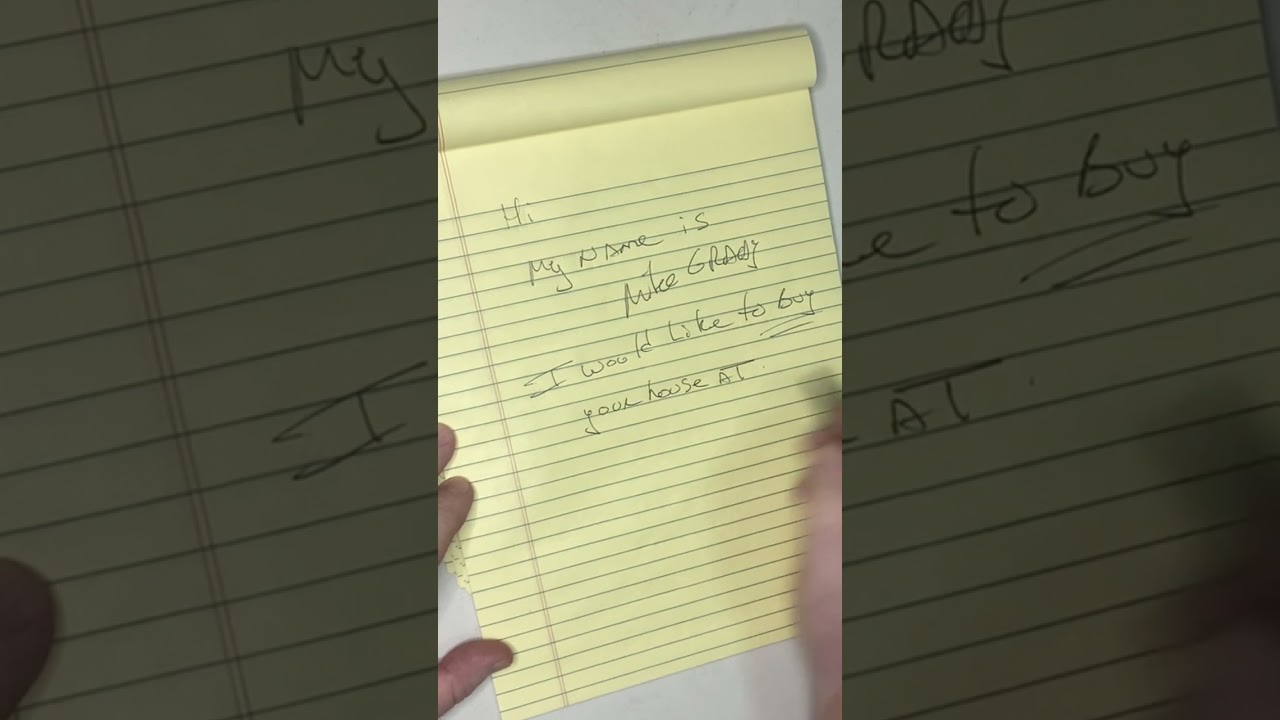 Hi
My NAME is
Mike GRADY
I would like to buy
your house AT.